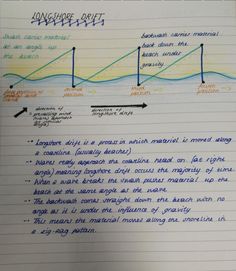 LONGSHORE DRIFT
Swash carries material
up an angle up
the beach
backwash carries material
back down the
beach under
gravity
direction of
prevailing wind
(waves approach
at similar
angle)
direction of
longshore drift
-- Longshore drift is a process in which material is moved along
a coastline (usually beaches)
-- Waves rarely approach the coastline head on (at right
angle) meaning longshore drift occurs the majority of time
-- When a wave breaks the swash pushes material up the
beach at the same angle as the wave
-- The backwash comes straight down the beach with no
angle as it is under the influence of gravity
-- This means the material moves along the shoreline in
a zig-zag pattern.